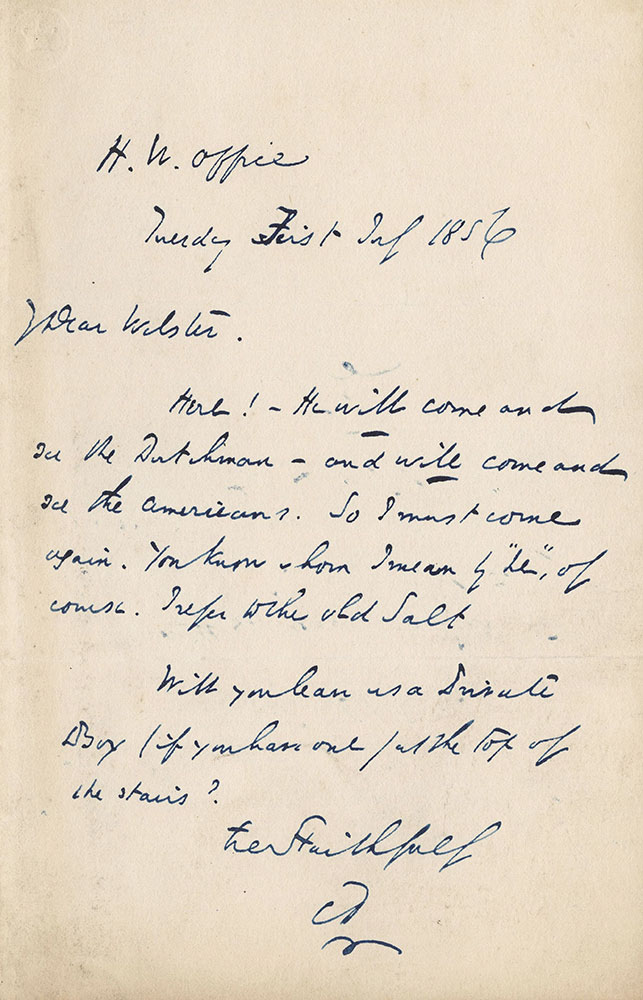 H. W. office
Tuesday First July 1856
My Dear Webster.
Here! - He will come and
see the Dutchman - and will come and
see the Americans. So I must come
again. You know whom I mean by "he", of
course. I refer to the old Salt
Will you leave us a Private
Box (if you have one) at the top of
the stairs?
Ever Faithfully
CD